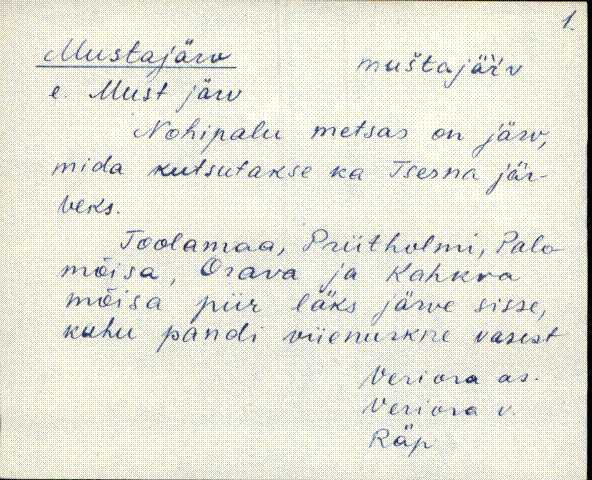 1.
Mustajärv muštajär̀v
e. Must järv
Nohipalu metsas on järv,
mida kutsutakse ka Tsesna jär-
veks.
Toolamaa, Priitholmi, Palo
mõisa, Orava ja Kahkva
mõisa piir läks järve sisse,
kuhu pandi viienurkne vasest
Veriora as.
Veriora v.
Räp